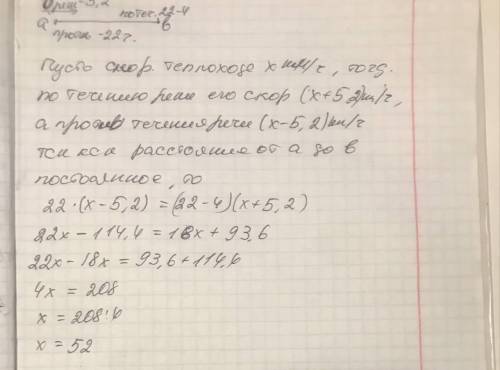 -5,2
по теч. 22-4
а в
против -22 ч.
Пусть скор. теплохода х км/ч, тогда
по течению реки его скор (х+5,2)км/ч,
а против течения реки (х-5,2)км/ч
расстояние от а до в
постоянное, то
22·(х-5,2) = (22-4)(х+5,2)
22х-114,4 = 18х+93,6
22х-18х = 93,6+114,4
4х = 208
х = 208:4
х = 52